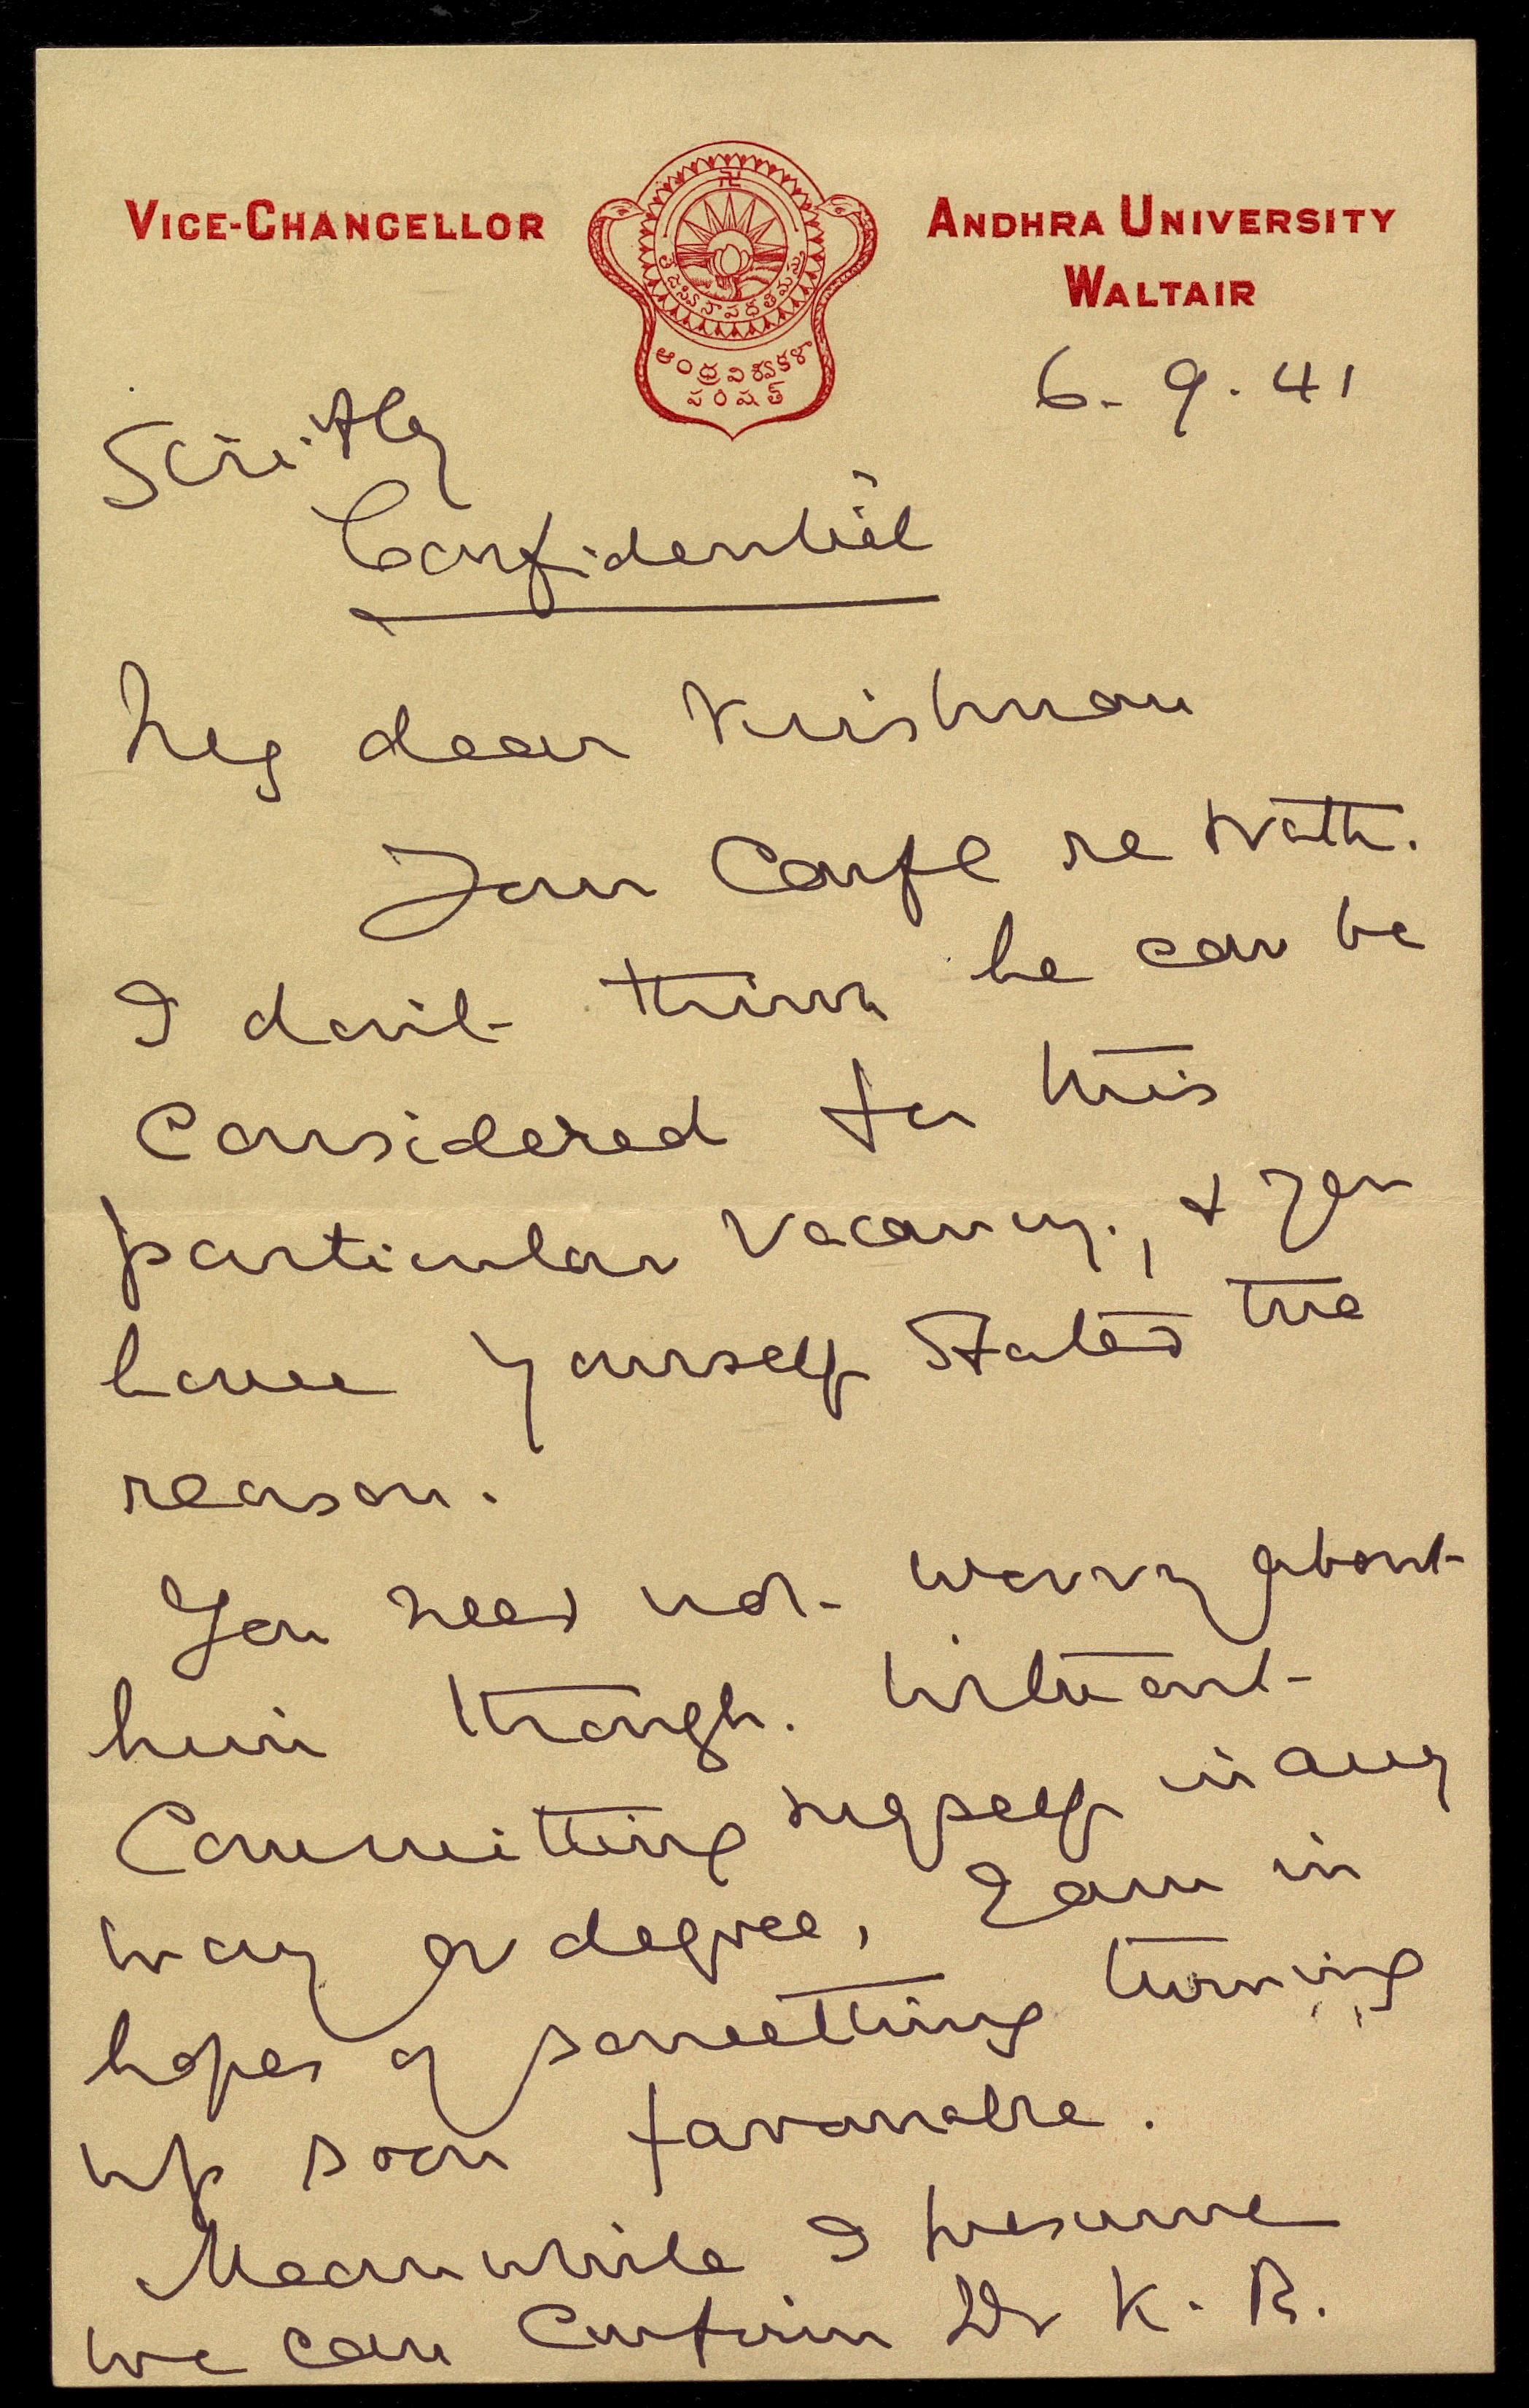 VICE-CHANCELLOR
ANDHRA UNIVERSITY
WALTAIR
తేజస్వినావధీతమస్తు
ఆంధ్రవిశ్వకళా
పరిషత్
6. 9. 41
Strictly
Confidential
My dear Krishnan
Your Confl re Nath.
I don't think he can be
considered for this
particular vacancy., & you
have yourself stated the
reason.
You need not worry about
him though. Without
Committing myself in any
way or degree, I am in
hopes of something turning
up soon favourable.
Meanwhile I presume
we can confirm Dr K. R.